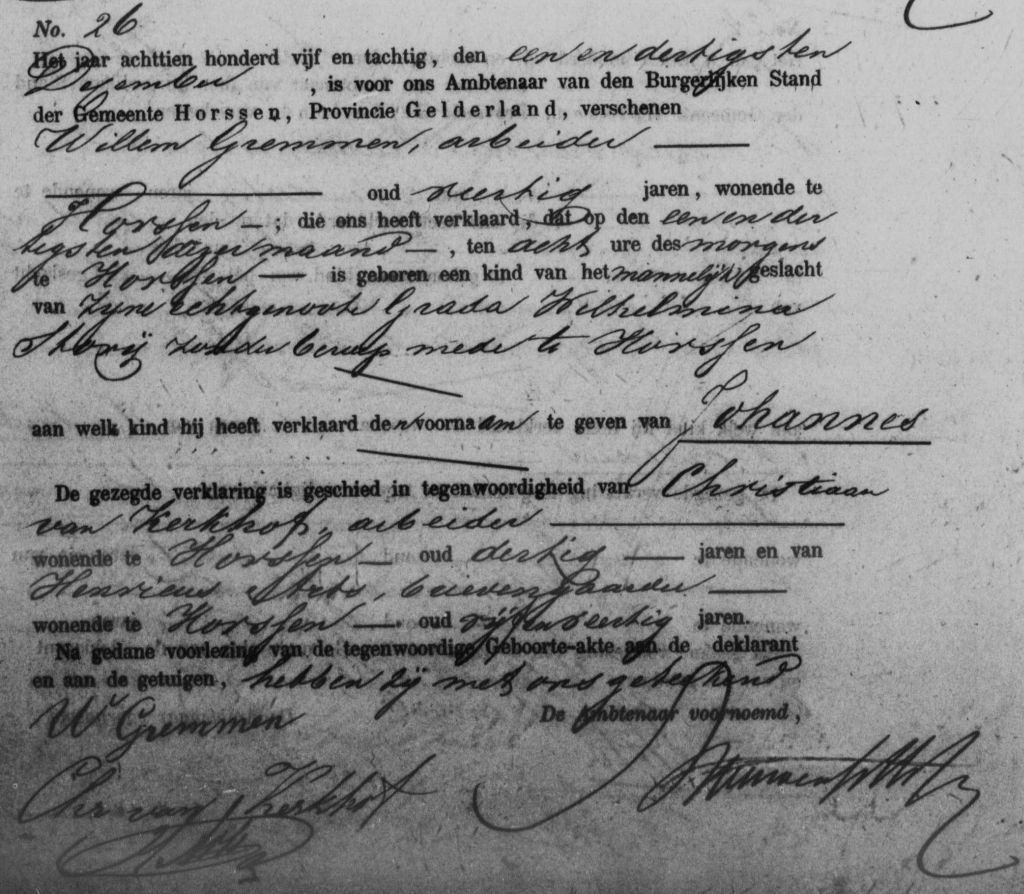 No. 26
Het jaar achttien honderd vijf en tachtig, den een en dertigsten
December , is voor ons Ambtenaar van den Burgerlijken Stand
der Gemeente Horssen, Provincie Gelderland, verschenen
Willem Gremmen, arbeider —
— oud veertig jaren, wonende te
Horssen —; die ons heeft verklaard, dat op den een en der
tigsten dezer maand —, ten acht ure des morgens
te Horssen — is geboren een kind van het mannelijk geslacht
van zyne echtgenoote Grada Wilhelmina
Story zonder beroep mede te Horssen
aan welk kind hij heeft verklaard den voornaam te geven van Johannes
De gezegde verklaring is geschied in tegenwoordigheid van Christiaan
van Kerkhof, arbeider —
wonende te Horssen — oud dertig — jaren en van
Henricus Arts, —
wonende te Horssen —. oud vijf en veertig jaren.
Na gedane voorlezing van de tegenwoordige Geboorte-akte aan de deklarant
en aan de getuigen, hebben zij met ons geteekend
W Gremmen De Ambtenaar voornoemd,
Chr van Kerkhof